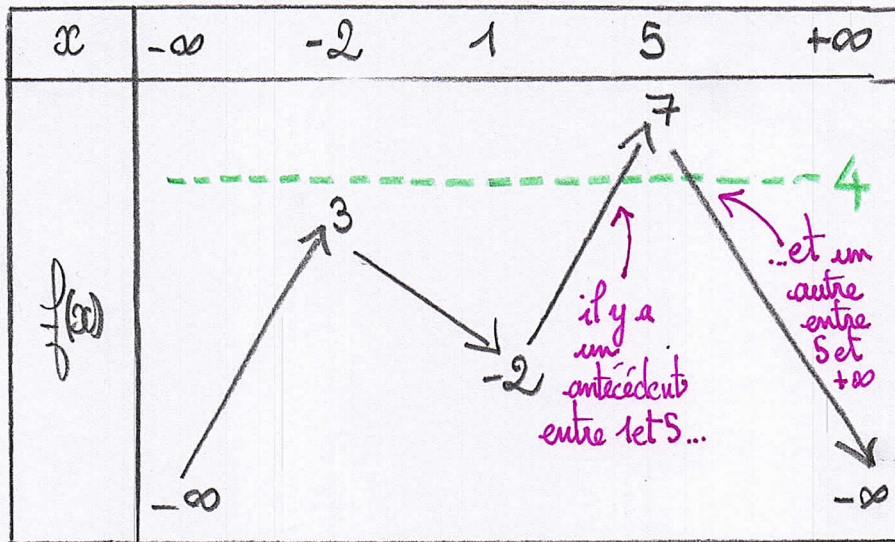 x -∞ -2 1 5 +∞
7
4
3
f(x)
-2
-∞
-∞
il y a
un
antécédent
entre 1 et 5...
...et un
autre
entre
5 et
+∞